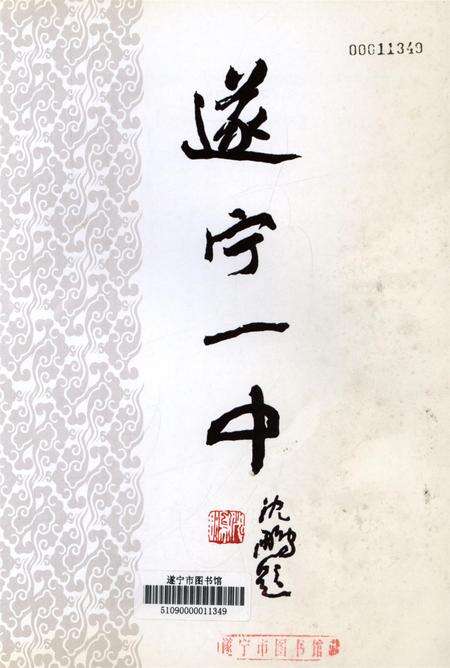 00011349
遂宁一中
沈鹏题
遂宁市图书馆
51090000011349
遂宁市图书馆